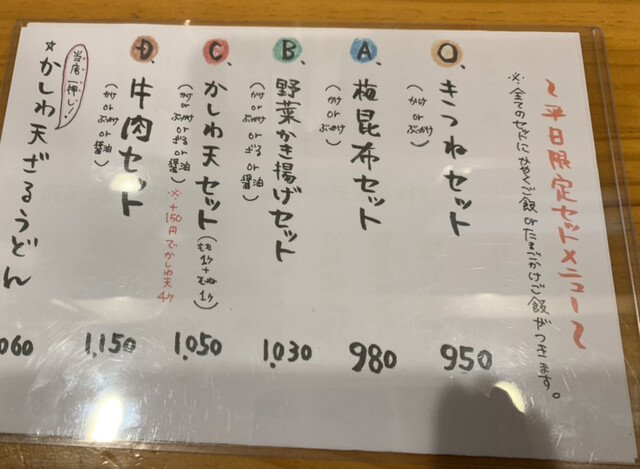 〜平日限定セットメニュー〜
※全てのセットにかやくご飯orたまごかけご飯がつきます。
O、きつねセット
(かけ or ぶっかけ)
950
A、梅昆布セット
(かけ or ぶっかけ)
980
B、野菜かき揚げセット
(かけ or ぶっかけ or ざる or 醤油)
1,030
C、かしわ天セット(もも1ケ+むね1ケ)
(かけ or ぶっかけ or ざる or 醤油)
※+150円でかしわ天4ケ
1,050
D、牛肉セット
(かけ or ぶっかけ or 醤油)
1,150
当店一押し!
☆かしわ天ざるうどん
060